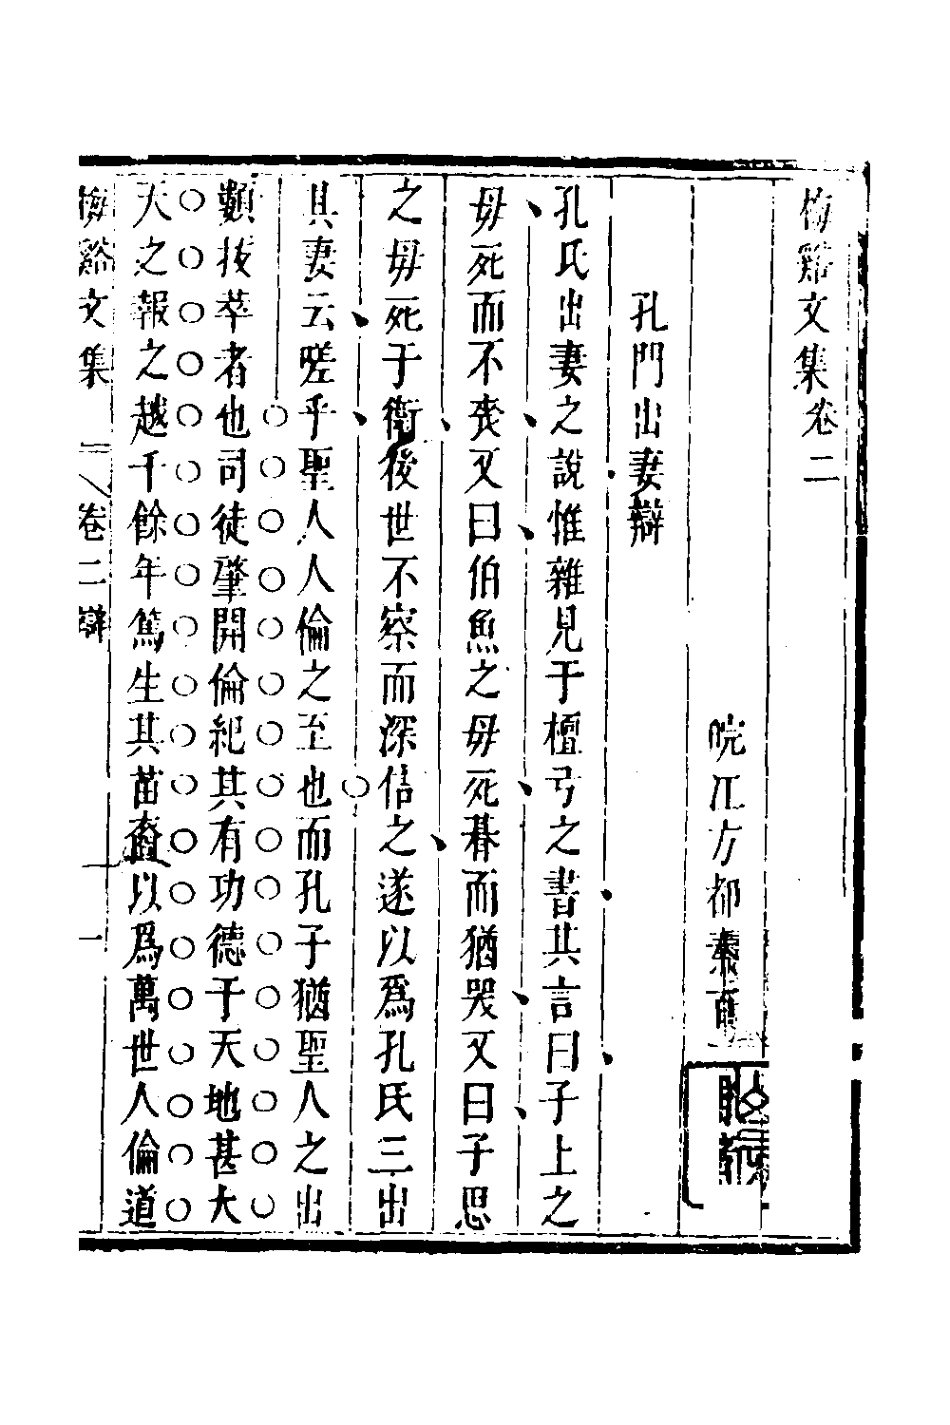 梅谿文集卷二
皖江方都秦
孔門出妻辯
孔氏出妻之說惟雜見于檀弓之書其言曰子上之
毋死而不喪又曰伯魚之毋死朞而猶哭又曰子思
之毋死于衛後世不察而深信之遂以爲孔氏三出
其妻云嗟乎聖人人倫之至也而孔子猶聖人之出
類拔萃者也司徒肇開倫紀其有功德于天地甚大
天之報之越千餘年篤生其苗裔以爲萬世人倫道
梅谿文集 卷二 辯 一